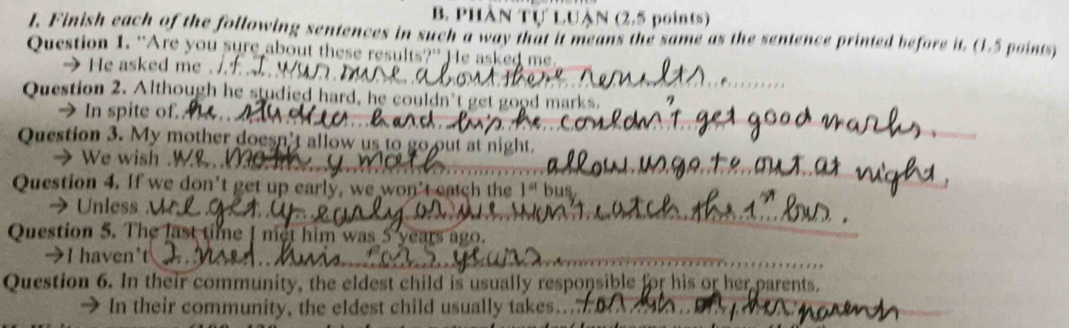 B. PHẦN TỰ LUẬN (2,5 points)
I. Finish each of the following sentences in such a way that it means the same as the sentence printed before it. (1,5 points)
Question 1. "Are you sure about these results?" He asked me.
→ He asked me if I was sure about there results.
Question 2. Although he studied hard, he couldn't get good marks.
→ In spite of he studied hard but he couldn't get good marks.
Question 3. My mother doesn't allow us to go out at night.
→ We wish we allow us go to out at night.
Question 4. If we don't get up early, we won't catch the 1st bus.
→ Unless we get up early or we won't catch the 1st bus.
Question 5. The last time I met him was 5 years ago.
→ I haven't I for 5 years.
Question 6. In their community, the eldest child is usually responsible for his or her parents.
→ In their community, the eldest child usually takes for his or her parents